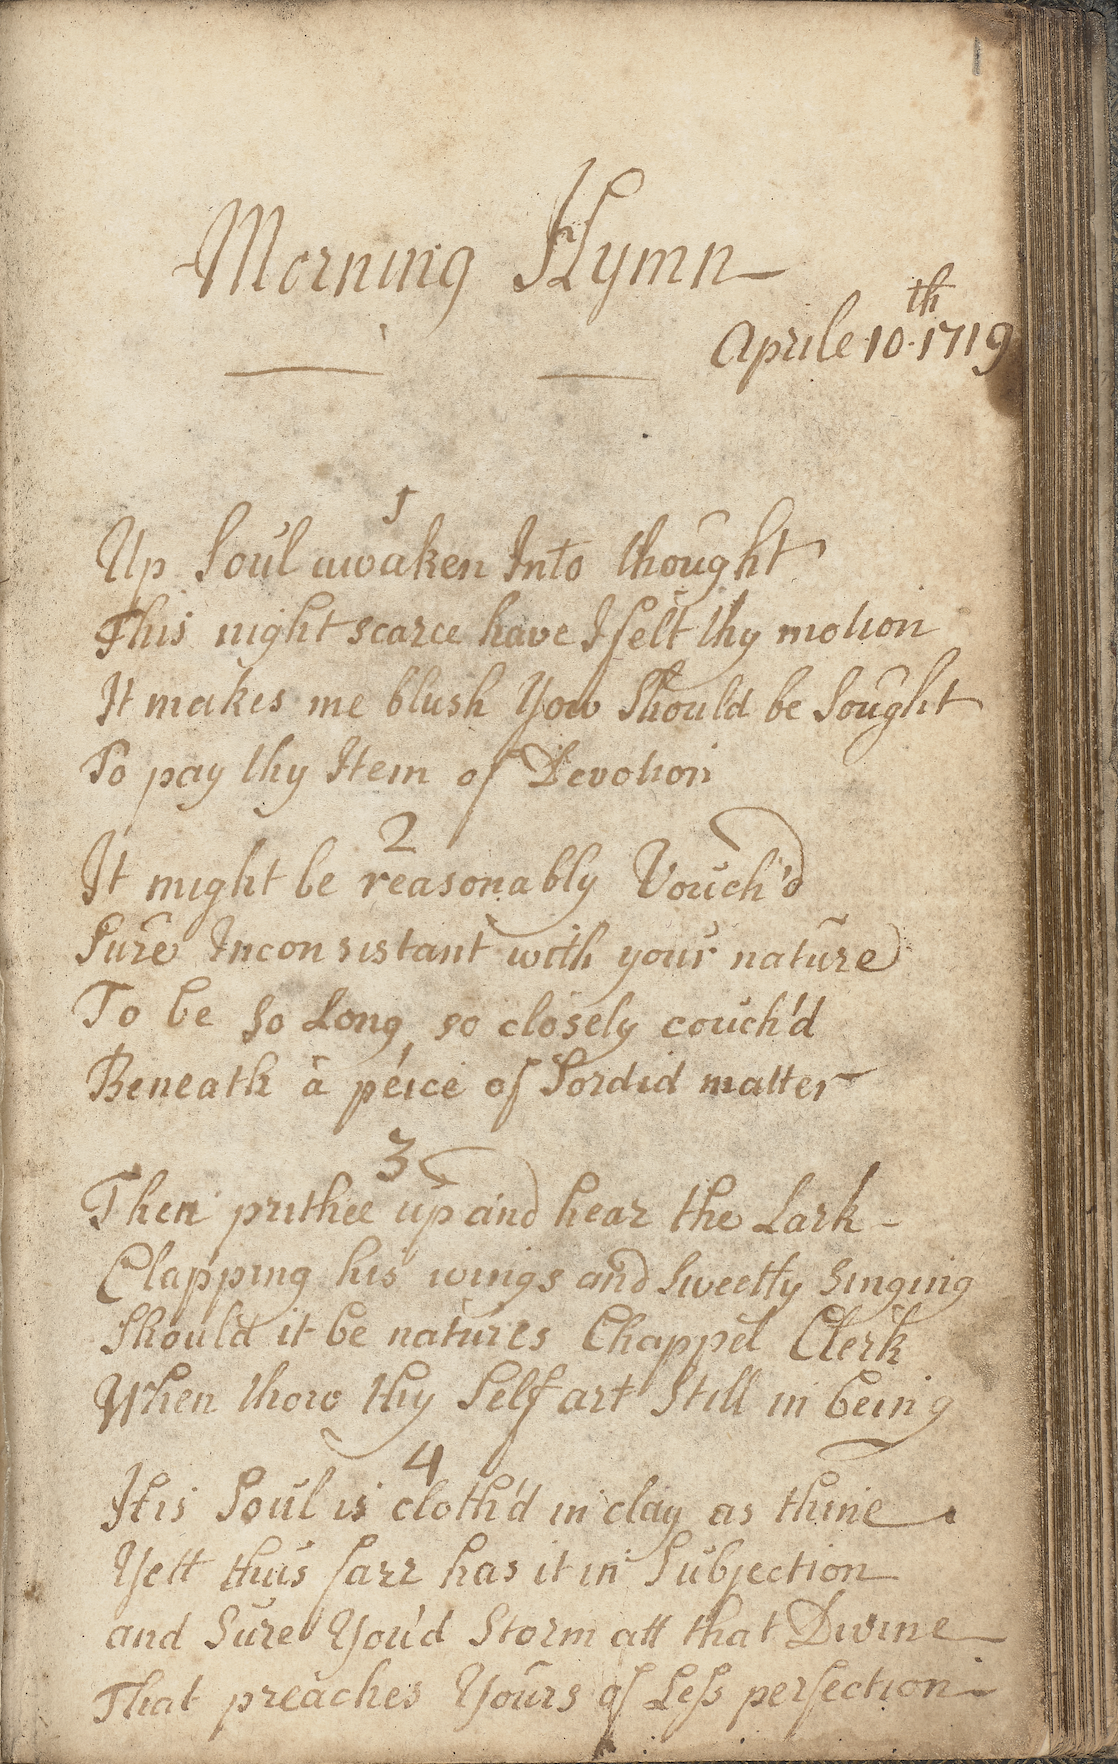 1
Morning Hymn
Aprile 10th 1719
1
Up Soul awaken Into thought
This night scarce have I felt thy motion
It makes me blush Yow Should be Sought
To pay thy Item of Devotion
2
It might be reasonably Vouch'd
Sure Inconsistant with your nature
To be so Long, so closely couch'd
Beneath a peice of Sordid matter
3
Then prithee up and hear the Lark -
Clapping his wings and Sweetly Singing
Should it be natures Chappel Clerk
When thow thy Self art Still in being
4
His Soul is cloth'd in clay as thine
Yett thus farr has it in Subjection
and Sure You'd Storm att that Divine
That preaches Yours of Less perfection